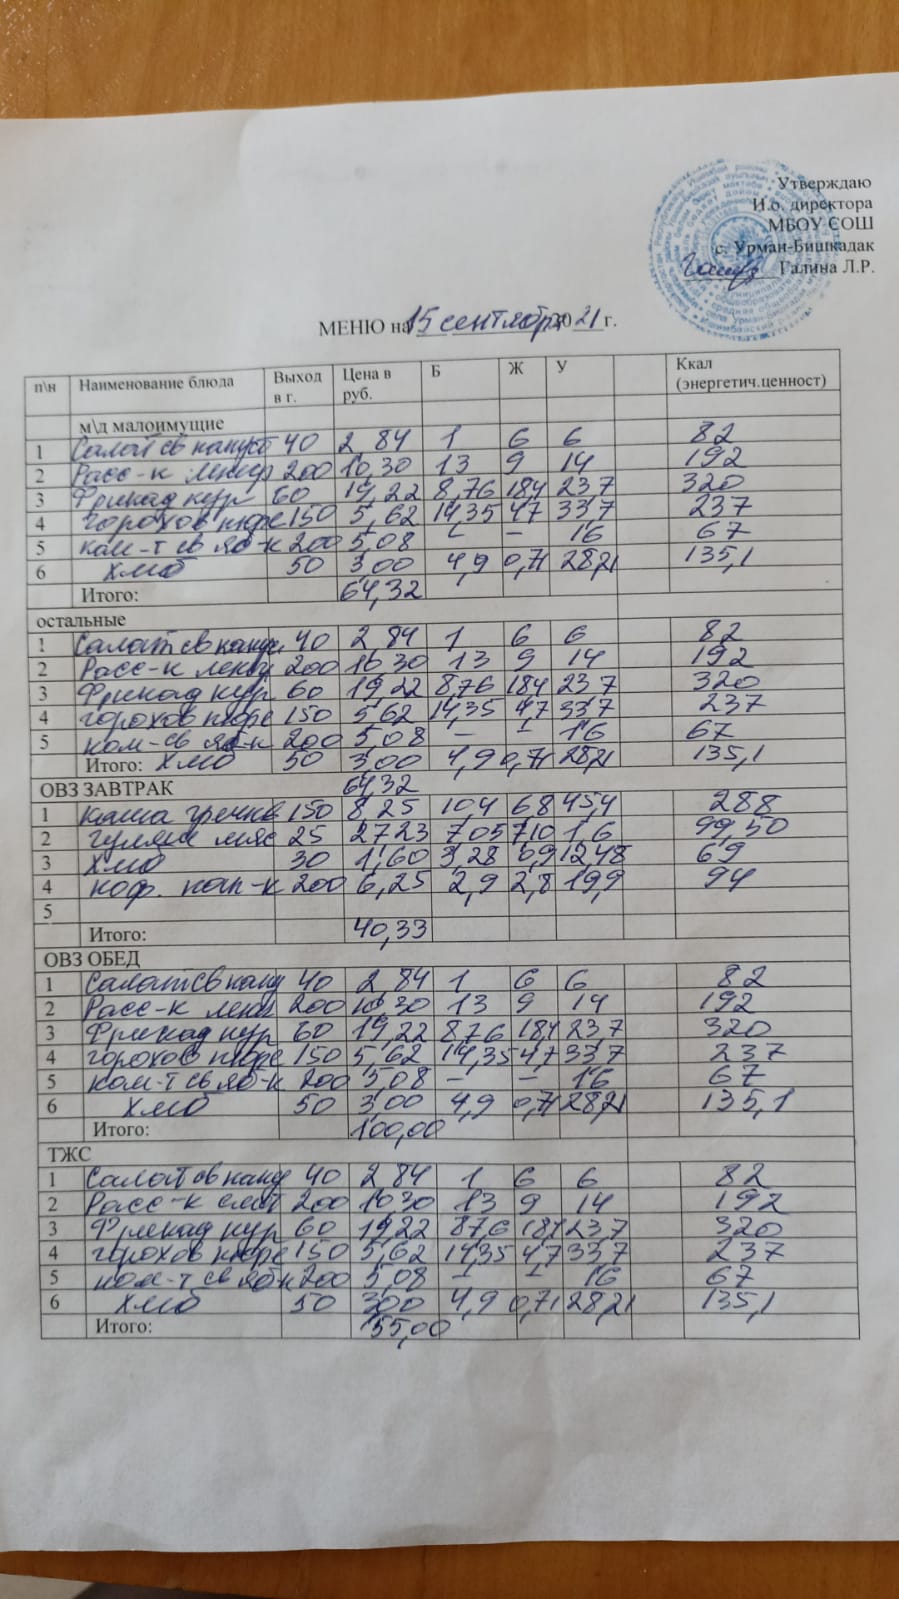 Утверждаю
И.о. директора
МБОУ СОШ
с. Урман-Бишкадак
Галина Л.Р.
МЕНЮ на 15 сентября 2021 г.
п\н Наименование блюда Выход в г. Цена в руб. Б Ж У Ккал (энергетич.ценност)
м\д малоимущие
1 Салат св капуст 40 2,84 1 6 6 82
2 Расс-к 200 10,30 13 9 14 192
3 Фрикад кур 60 8,76 18,4 23,7 320
4 горохов пюре 150 5,62 14,35 4,7 33,7 237
5 ком-т св яб-к 200 5,08 - - 16 67
6 хлеб 50 3,00 4,9 0,71 28,21 135,1
Итого: 64,32
остальные
1 Салат св капус 40 2,84 1 6 6 82
2 Расс-к 200 10,30 13 9 14 192
3 Фрикад кур 60 8,76 184 23,7 320
4 горохов пюре 150 5,62 14,35 4,7 33,7 237
5 ком- св яб-к 200 5,08 - - 16 67
Итого: хлеб 50 3,00 4,9 0,71 28,21 135,1
64,32
ОВЗ ЗАВТРАК
1 каша гречнев 150 8,25 10,4 6,8 45,4 288
2 гуляш мяс 25 27,23 7,05 7,10 1,6 99,50
3 хлеб 30 1,60 3,28 12,48 69
4 коф. нап-к 200 6,25 2,9 2,8 19,9 94
5
Итого: 40,33
ОВЗ ОБЕД
1 Салат св капу 40 2,84 1 6 6 82
2 Расс-к 200 10,30 13 9 14 192
3 Фрикад кур 60 8,76 18,4 23,7 320
4 горохов пюре 150 5,62 14,35 4,7 33,7 237
5 ком-т св яб-к 200 5,08 - - 16 67
6 хлеб 50 3,00 4,9 0,71 28,21 135,1
Итого: 100,00
ТЖС
1 Салат св капу 40 2,84 1 6 6 82
2 Расс-к 200 10,30 13 9 14 192
3 Фрикад кур 60 87,6 23,7 320
4 горохов пюре 150 5,62 14,35 4,7 33,7 237
5 ком-т св яб-к 200 5,08 - - 16 67
6 хлеб 50 3,00 4,9 0,71 28,21 135,1
Итого: 55,00